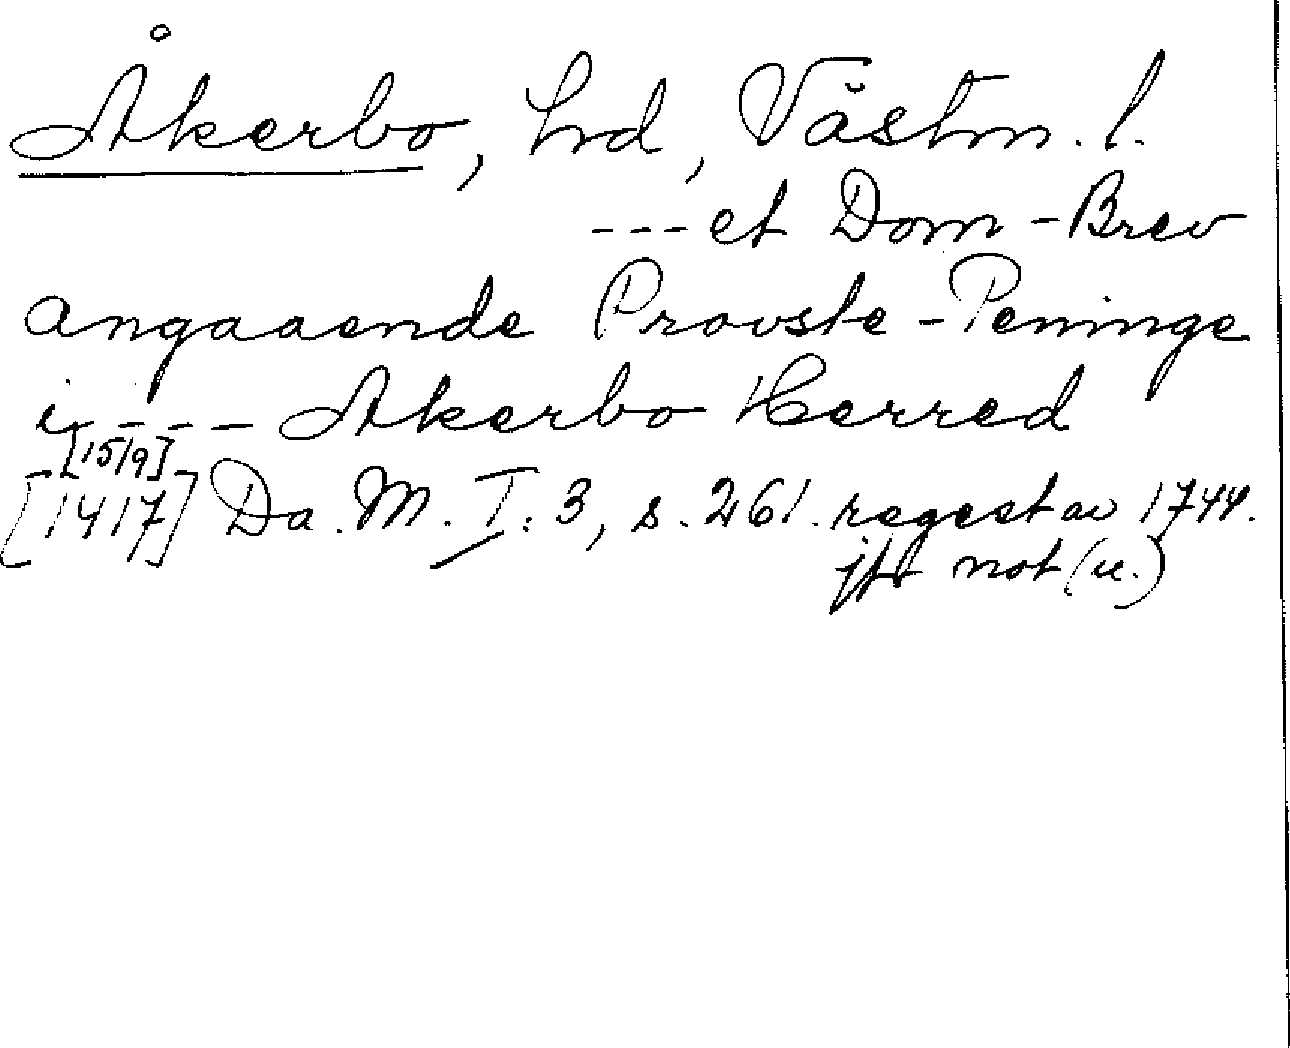 Åkerbo, hrd, Västm. l.
--- et Dom-Brev
angaaende Provste-Peninge
i ---- Akerbo Herred
[15/9]
[1417] Da. M. I: 3, s. 261. regest av 1744.
jfr not (u.)